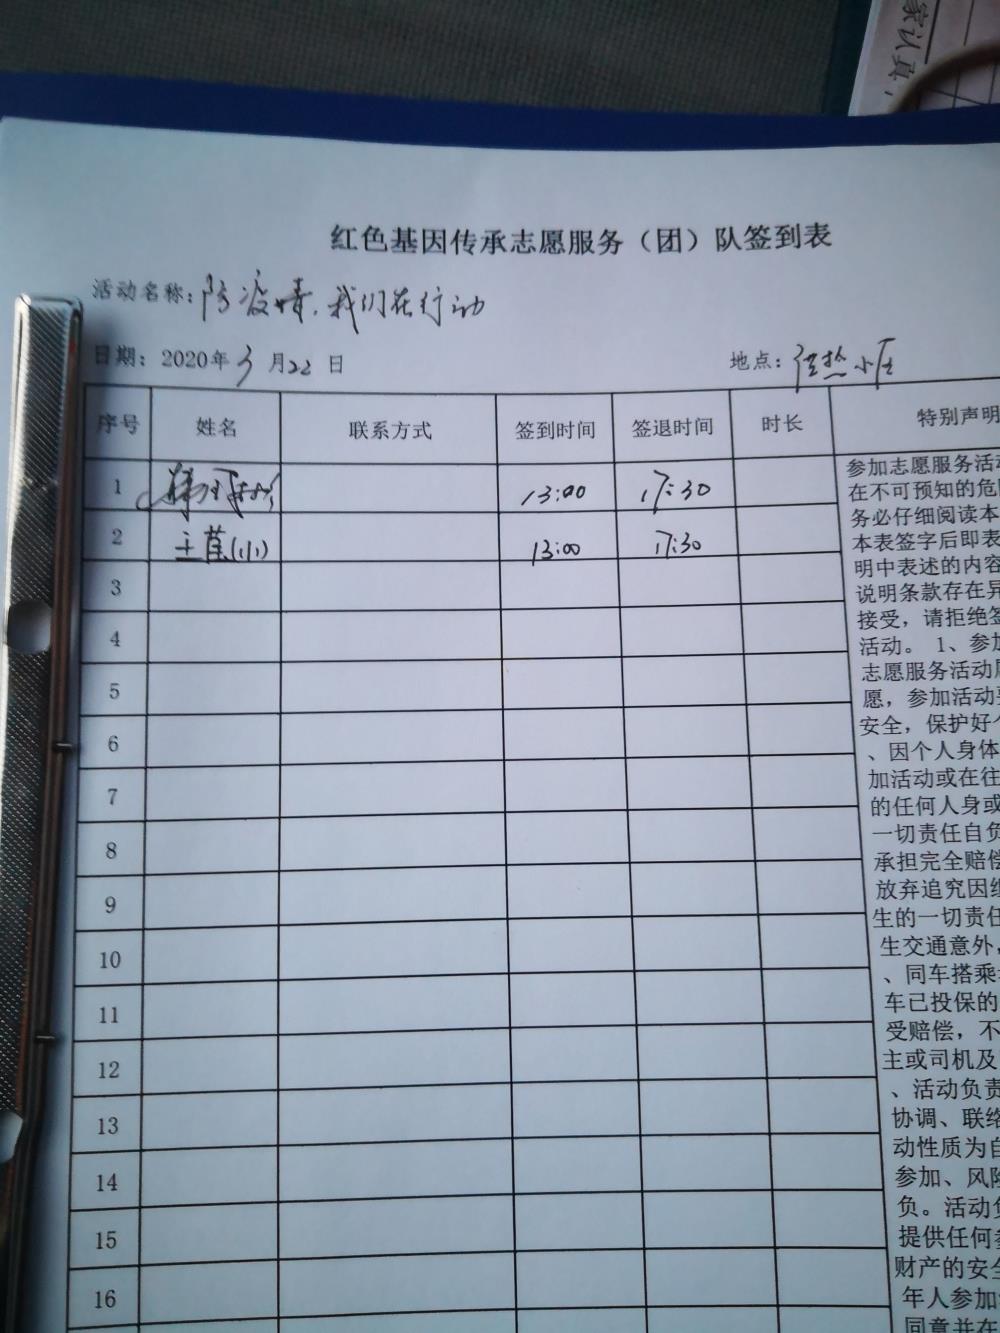 家认真,
红色基因传承志愿服务（团）队签到表
活动名称：防疫情.我们在行动
日期：2020年3月22日 地点：供热小区
序号 姓名 联系方式 签到时间 签退时间 时长 特别声明
1 13:00 17:30
2 王 13:00 17:30
3
4
5
6
7
8
9
10
11
12
13
14
15
16
参加志愿服务活动
在不可预知的危
务必仔细阅读本
本表签字后即表
明中表述的内容
说明条款存在异
接受，请拒绝签
活动。 1、参加
志愿服务活动
愿，参加活动
安全，保护好个
、因个人身体
加活动或在往
的任何人身或
一切责任自负
承担完全赔偿
放弃追究因组
生的一切责任
生交通意外，
、同车搭乘
车已投保的
受赔偿，不
主或司机及
、活动负责
协调、联络
动性质为自
参加、风险
负。活动负
提供任何
财产的安全
年人参加
同意并在